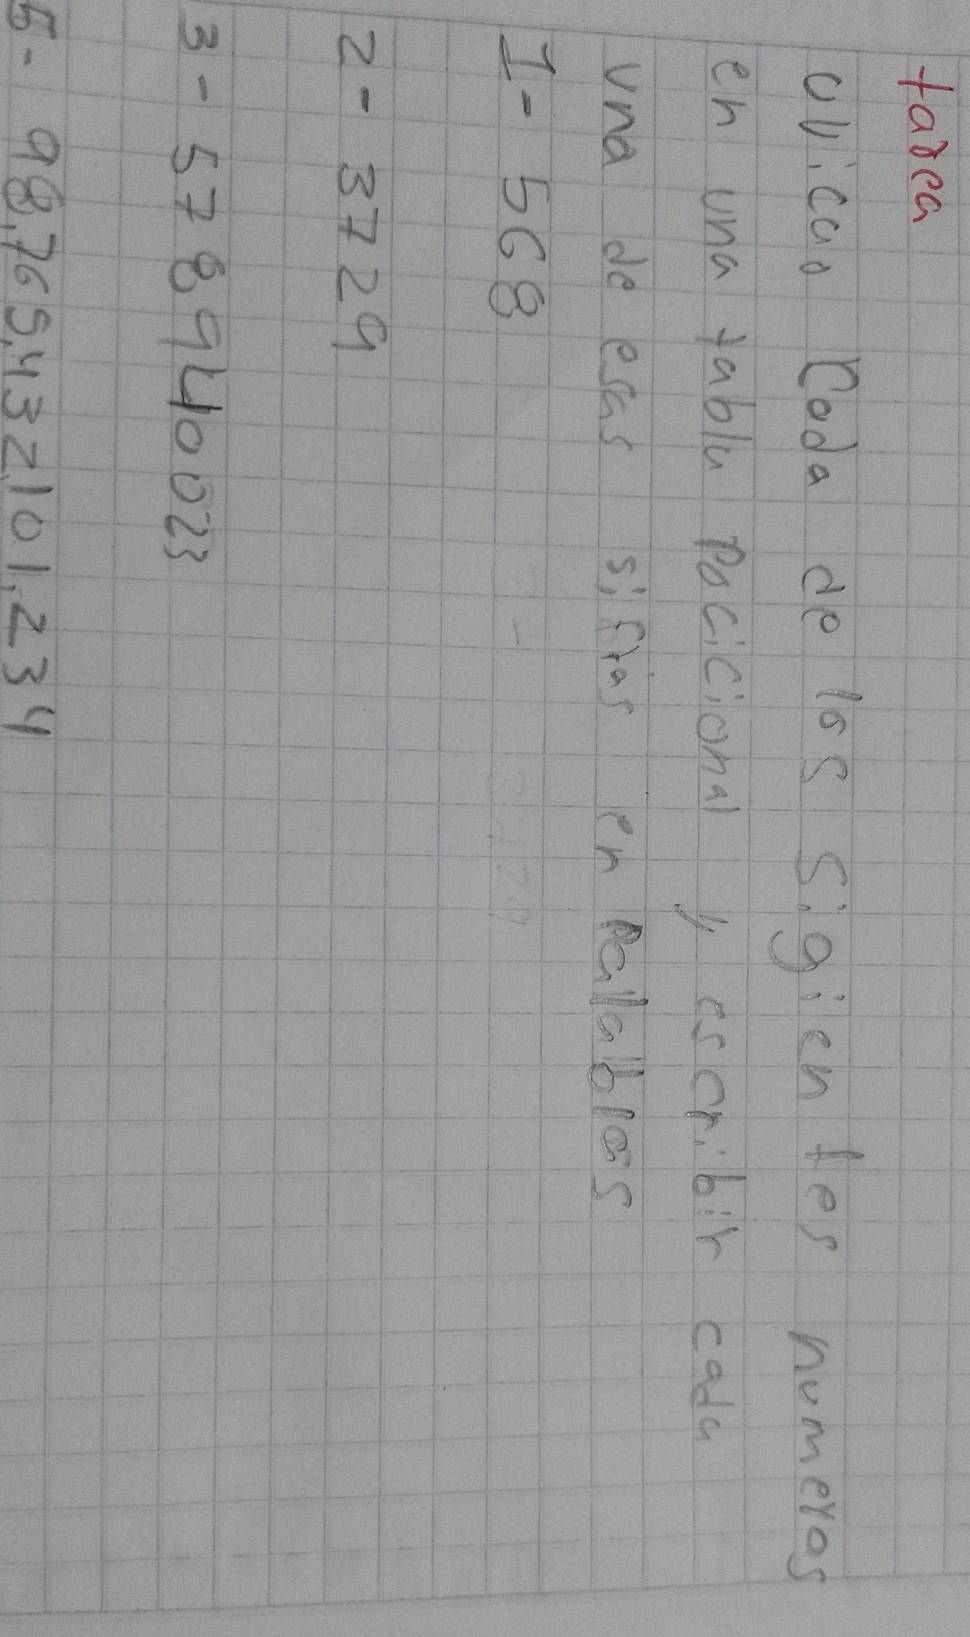 tarea
Ubicar Cada de los Sigientes numeros
en una tabla Pocicional y escribir cada
una de esas sifras en Palablas
1- 568
2- 3729
3- 578940023
5- 98,765,432,101,234